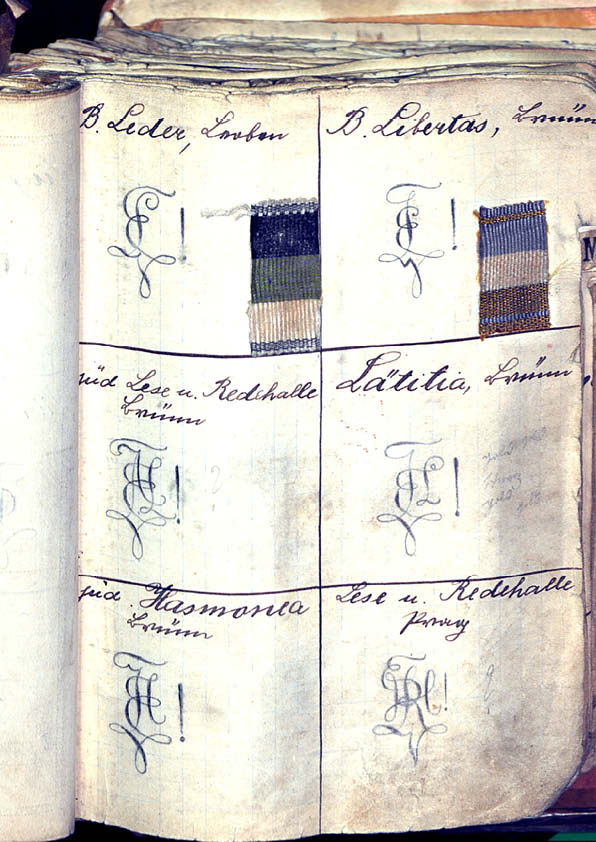 B. Leder, Leoben
B. Libertas, Brünn
jüd Lese u. Redehalle
Brünn
Lätitia, Brünn
jüd. Hasmonea
Brünn
Lese u. Redehalle
Prag